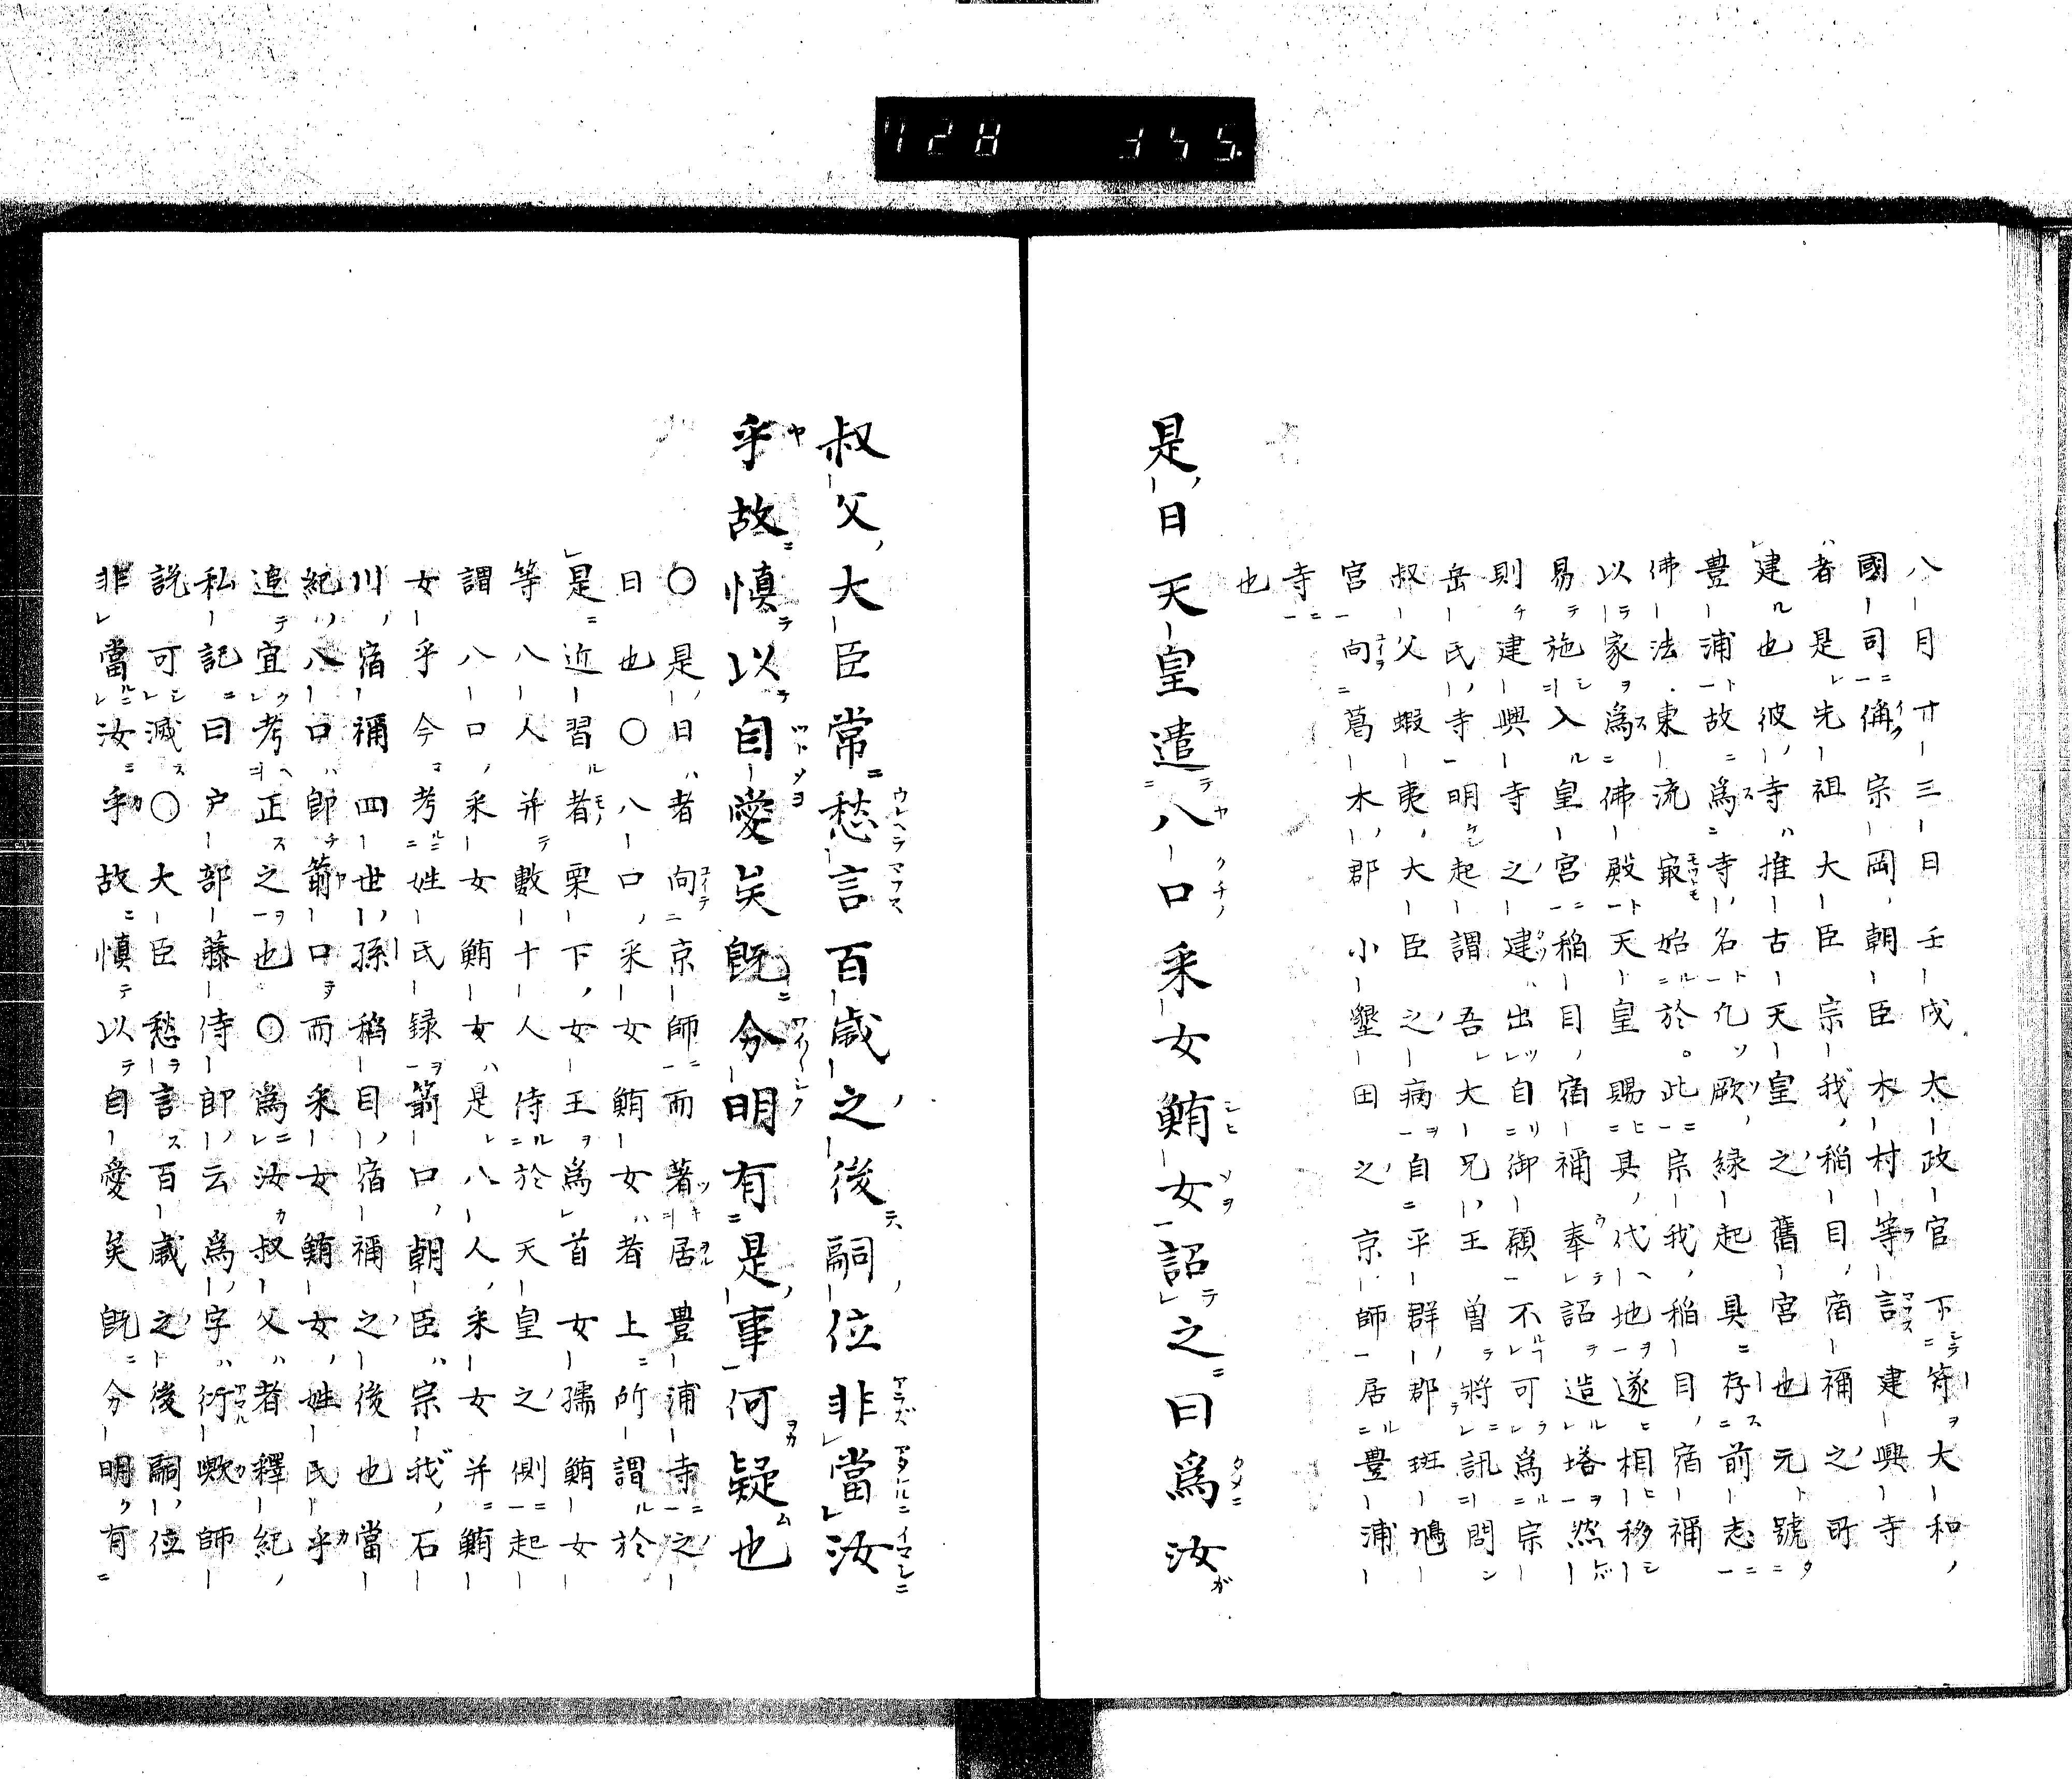 728 355
八月廿三日壬戌太政官下符大和
國司偁宗岡朝臣木村等言建興寺
者是先祖大臣宗我稻目宿禰之所
建也彼寺推古天皇之舊宮也元號
豊浦故爲寺名凡厥緑起具存前志
佛法東流㝡始於此宗我稻目宿禰
以家爲佛殿天皇賜具代地遂相移
易施入皇宮稲目宿禰奉詔造塔然
則建興寺之建出自御願不可爲宗
岳氏寺明起謂吾大兄王曽將訊問
叔父蝦夷大臣之病自平群郡班鳩
宮向葛木郡小墾田之京師居豊浦
寺
也
是日天皇遣八口釆女鮪女詔之曰爲汝
叔父大臣常愁言百歳之後嗣位非當汝
乎故慎以自愛矣既分明有是事何疑也
○是日者向京師而著居豊浦寺之
日也○八口釆女鮪女者上所謂於
是近習者栗下女王爲首女孺鮪女
等八人并數十人侍於天皇之側起
謂八口釆女鮪女是八人釆女并鮪
女乎今考姓氏録箭口朝臣宗我石
川宿禰四世孫稻目宿禰之後也當
紀八口即箭口而釆女鮪女姓民乎
追宜考正之也○爲汝叔父者釋紀
私記曰戸部藤侍郎云爲字衍歟師
説可滅○大臣愁言百歳之後嗣位
非當汝乎故慎以自愛矣既分明有